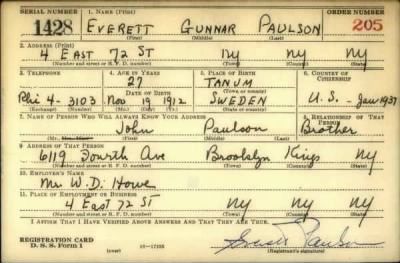 SERIAL NUMBER 1. NAME (Print) ORDER NUMBER
1428 EVERETT GUNNAR PAULSON 205
(First) (Middle) (Last)
2. ADDRESS (Print)
4 EAST 72 ST NY NY
(Number and street or R. F. D. number) (Town) (County) (State)
3. TELEPHONE 4. AGE IN YEARS 5. PLACE OF BIRTH 6. COUNTRY OF CITIZENSHIP
27 TANUM
DATE OF BIRTH (Town or county)
4-3103 Nov 19 1912 SWEDEN U.S. - Jan 1937
(Exchange) (Number) (Mo.) (Day) (Yr.) (State or country)
7. NAME OF PERSON WHO WILL ALWAYS KNOW YOUR ADDRESS 8. RELATIONSHIP OF THAT PERSON
John Paulson Brother
(First) (Middle) (Last)
9. ADDRESS OF THAT PERSON
6119 Fourth Ave Brooklyn Kings NY
(Number and street or R. F. D. number) (Town) (County) (State)
10. EMPLOYER'S NAME
Mr W.D. Howe
11. PLACE OF EMPLOYMENT OR BUSINESS
4 East 72 ST NY NY
(Number and street or R. F. D. number) (Town) (County) (State)
I AFFIRM THAT I HAVE VERIFIED ABOVE ANSWERS AND THAT THEY ARE TRUE.
REGISTRATION CARD
D. S. S. Form 1 (over) Everett Paulson
(Registrant's signature)